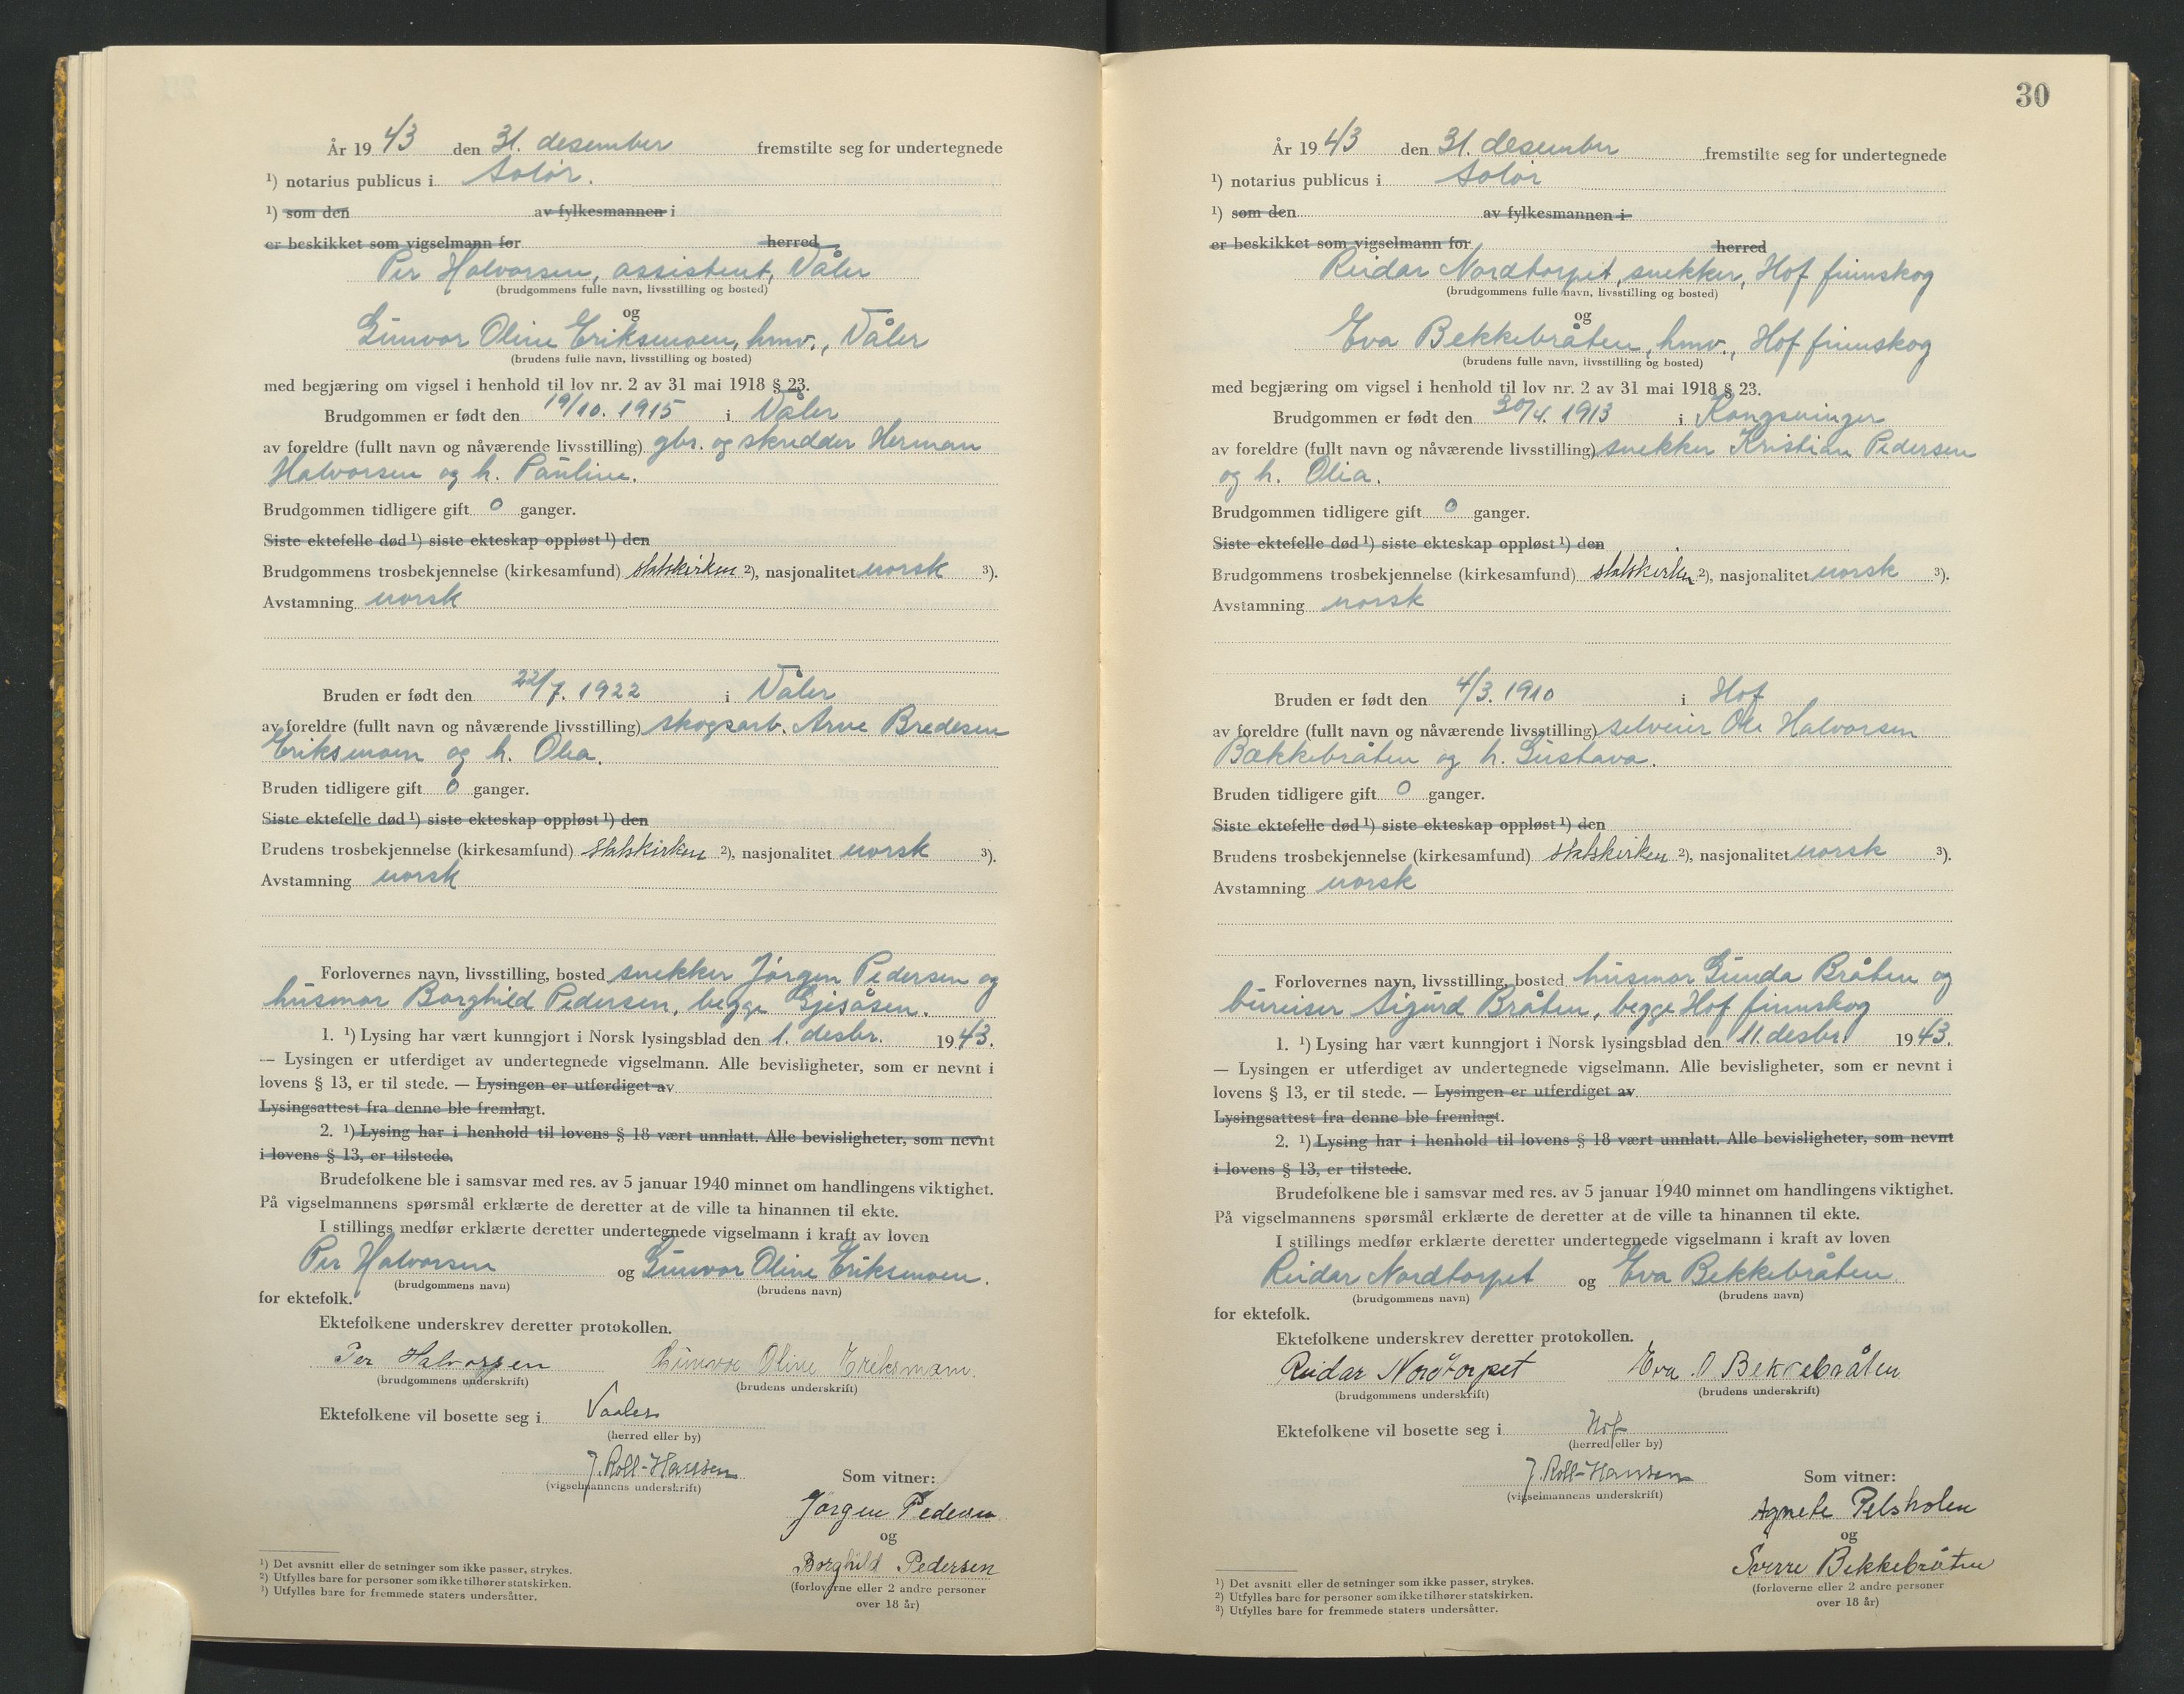 År 1943 den 31. desember fremstilte seg for undertegnede
¹) notarius publicus i Solør.
¹) som den av fylkesmannen i
er beskikket som vigselmann for herred
Per Halvorsen, assistent, Våler
(brudgommens fulle navn, livsstilling og bosted)
og
Gunvor Oline Eriksmoen, hmv., Våler
(brudens fulle navn, livsstilling og bosted)
med begjæring om vigsel i henhold til lov nr. 2 av 31 mai 1918 § 23.
Brudgommen er født den 19/10. 1915 i Våler
av foreldre (fullt navn og nåværende livsstilling) gbr. og skredder Herman
Halvorsen og h. Pauline.
Brudgommen tidligere gift 0 ganger.
Siste ektefelle død ¹) siste ekteskap oppløst ¹) den
Brudgommens trosbekjennelse (kirkesamfund) statskirken ²), nasjonalitet norsk ³).
Avstamning norsk
Bruden er født den 22/7. 1922 i Våler
av foreldre (fullt navn og nåværende livsstilling) skogsarb. Arve Bredesen
Eriksmoen og h. Olea.
Bruden tidligere gift 0 ganger.
Siste ektefelle død ¹) siste ekteskap oppløst ¹) den
Brudens trosbekjennelse (kirkesamfund) statskirken ²), nasjonalitet norsk ³).
Avstamning norsk
Forlovernes navn, livsstilling, bosted snekker Jørgen Pedersen og
husmor Borghild Pedersen, begge Gjesåsen.
1. ¹) Lysing har vært kunngjort i Norsk lysingsblad den 1. desbr. 1943.
— Lysingen er utferdiget av undertegnede vigselmann. Alle bevisligheter, som er nevnt i
lovens § 13, er til stede. — Lysingen er utferdiget av
Lysingsattest fra denne ble fremlagt.
2. ¹) Lysing har i henhold til lovens § 18 vært unnlatt. Alle bevisligheter, som nevnt
i lovens § 13, er tilstede.
Brudefolkene ble i samsvar med res. av 5 januar 1940 minnet om handlingens viktighet.
På vigselmannens spørsmål erklærte de deretter at de ville ta hinannen til ekte.
I stillings medfør erklærte deretter undertegnede vigselmann i kraft av loven
Per Halvorsen og Gunvor Oline Eriksmoen.
(brudgommens navn) (brudens navn)
for ektefolk.
Ektefolkene underskrev deretter protokollen.
Per Halvorsen Gunvor Oline Eriksmoen.
(brudgommens underskrift) (brudens underskrift)
Ektefolkene vil bosette seg i Vaaler
(herred eller by)
J. Roll-Hansen
(vigselmannens underskrift)
Som vitner:
Jørgen Pedersen
og
Borghild Pedersen
(forloverne eller 2 andre personer
over 18 år)
¹) Det avsnitt eller de setninger som ikke passer, strykes.
²) Utfylles bare for personer som ikke tilhører statskirken.
³) Utfylles bare for fremmede staters undersåtter.
30
År 1943 den 31. desember fremstilte seg for undertegnede
¹) notarius publicus i Solør
¹) som den av fylkesmannen i
er beskikket som vigselmann for herred
Reidar Nordtorpet, snekker, Hof finnskog
(brudgommens fulle navn, livsstilling og bosted)
og
Eva Bekkebråten, hmv., Hof finnskog
(brudens fulle navn, livsstilling og bosted)
med begjæring om vigsel i henhold til lov nr. 2 av 31 mai 1918 § 23.
Brudgommen er født den 30/4. 1913 i Kongsvinger
av foreldre (fullt navn og nåværende livsstilling) snekker Kristian Pedersen
og h. Olia.
Brudgommen tidligere gift 0 ganger.
Siste ektefelle død ¹) siste ekteskap oppløst ¹) den
Brudgommens trosbekjennelse (kirkesamfund) statskirken ²), nasjonalitet norsk ³).
Avstamning norsk
Bruden er født den 4/3. 1910 i Hof
av foreldre (fullt navn og nåværende livsstilling) selveier Ole Halvorsen
Bækkebråten og h. Gustava.
Bruden tidligere gift 0 ganger.
Siste ektefelle død ¹) siste ekteskap oppløst ¹) den
Brudens trosbekjennelse (kirkesamfund) statskirken ²), nasjonalitet norsk ³).
Avstamning norsk
Forlovernes navn, livsstilling, bosted husmor Gunda Bråten og
bureiser Sigurd Bråten, begge Hof finnskog
1. ¹) Lysing har vært kunngjort i Norsk lysingsblad den 11. desbr. 1943.
— Lysingen er utferdiget av undertegnede vigselmann. Alle bevisligheter, som er nevnt i
lovens § 13, er til stede. — Lysingen er utferdiget av
Lysingsattest fra denne ble fremlagt.
2. ¹) Lysing har i henhold til lovens § 18 vært unnlatt. Alle bevisligheter, som nevnt
i lovens § 13, er tilstede.
Brudefolkene ble i samsvar med res. av 5 januar 1940 minnet om handlingens viktighet.
På vigselmannens spørsmål erklærte de deretter at de ville ta hinannen til ekte.
I stillings medfør erklærte deretter undertegnede vigselmann i kraft av loven
Reidar Nordtorpet og Eva Bekkebråten.
(brudgommens navn) (brudens navn)
for ektefolk.
Ektefolkene underskrev deretter protokollen.
Reidar Nordtorpet Eva O Bekkebråten
(brudgommens underskrift) (brudens underskrift)
Ektefolkene vil bosette seg i Hof
(herred eller by)
J. Roll-Hansen
(vigselmannens underskrift)
Som vitner:
Agnete Pelsholen
og
Sverre Bekkebråten
(forloverne eller 2 andre personer
over 18 år)
¹) Det avsnitt eller de setninger som ikke passer, strykes.
²) Utfylles bare for personer som ikke tilhører statskirken.
³) Utfylles bare for fremmede staters undersåtter.